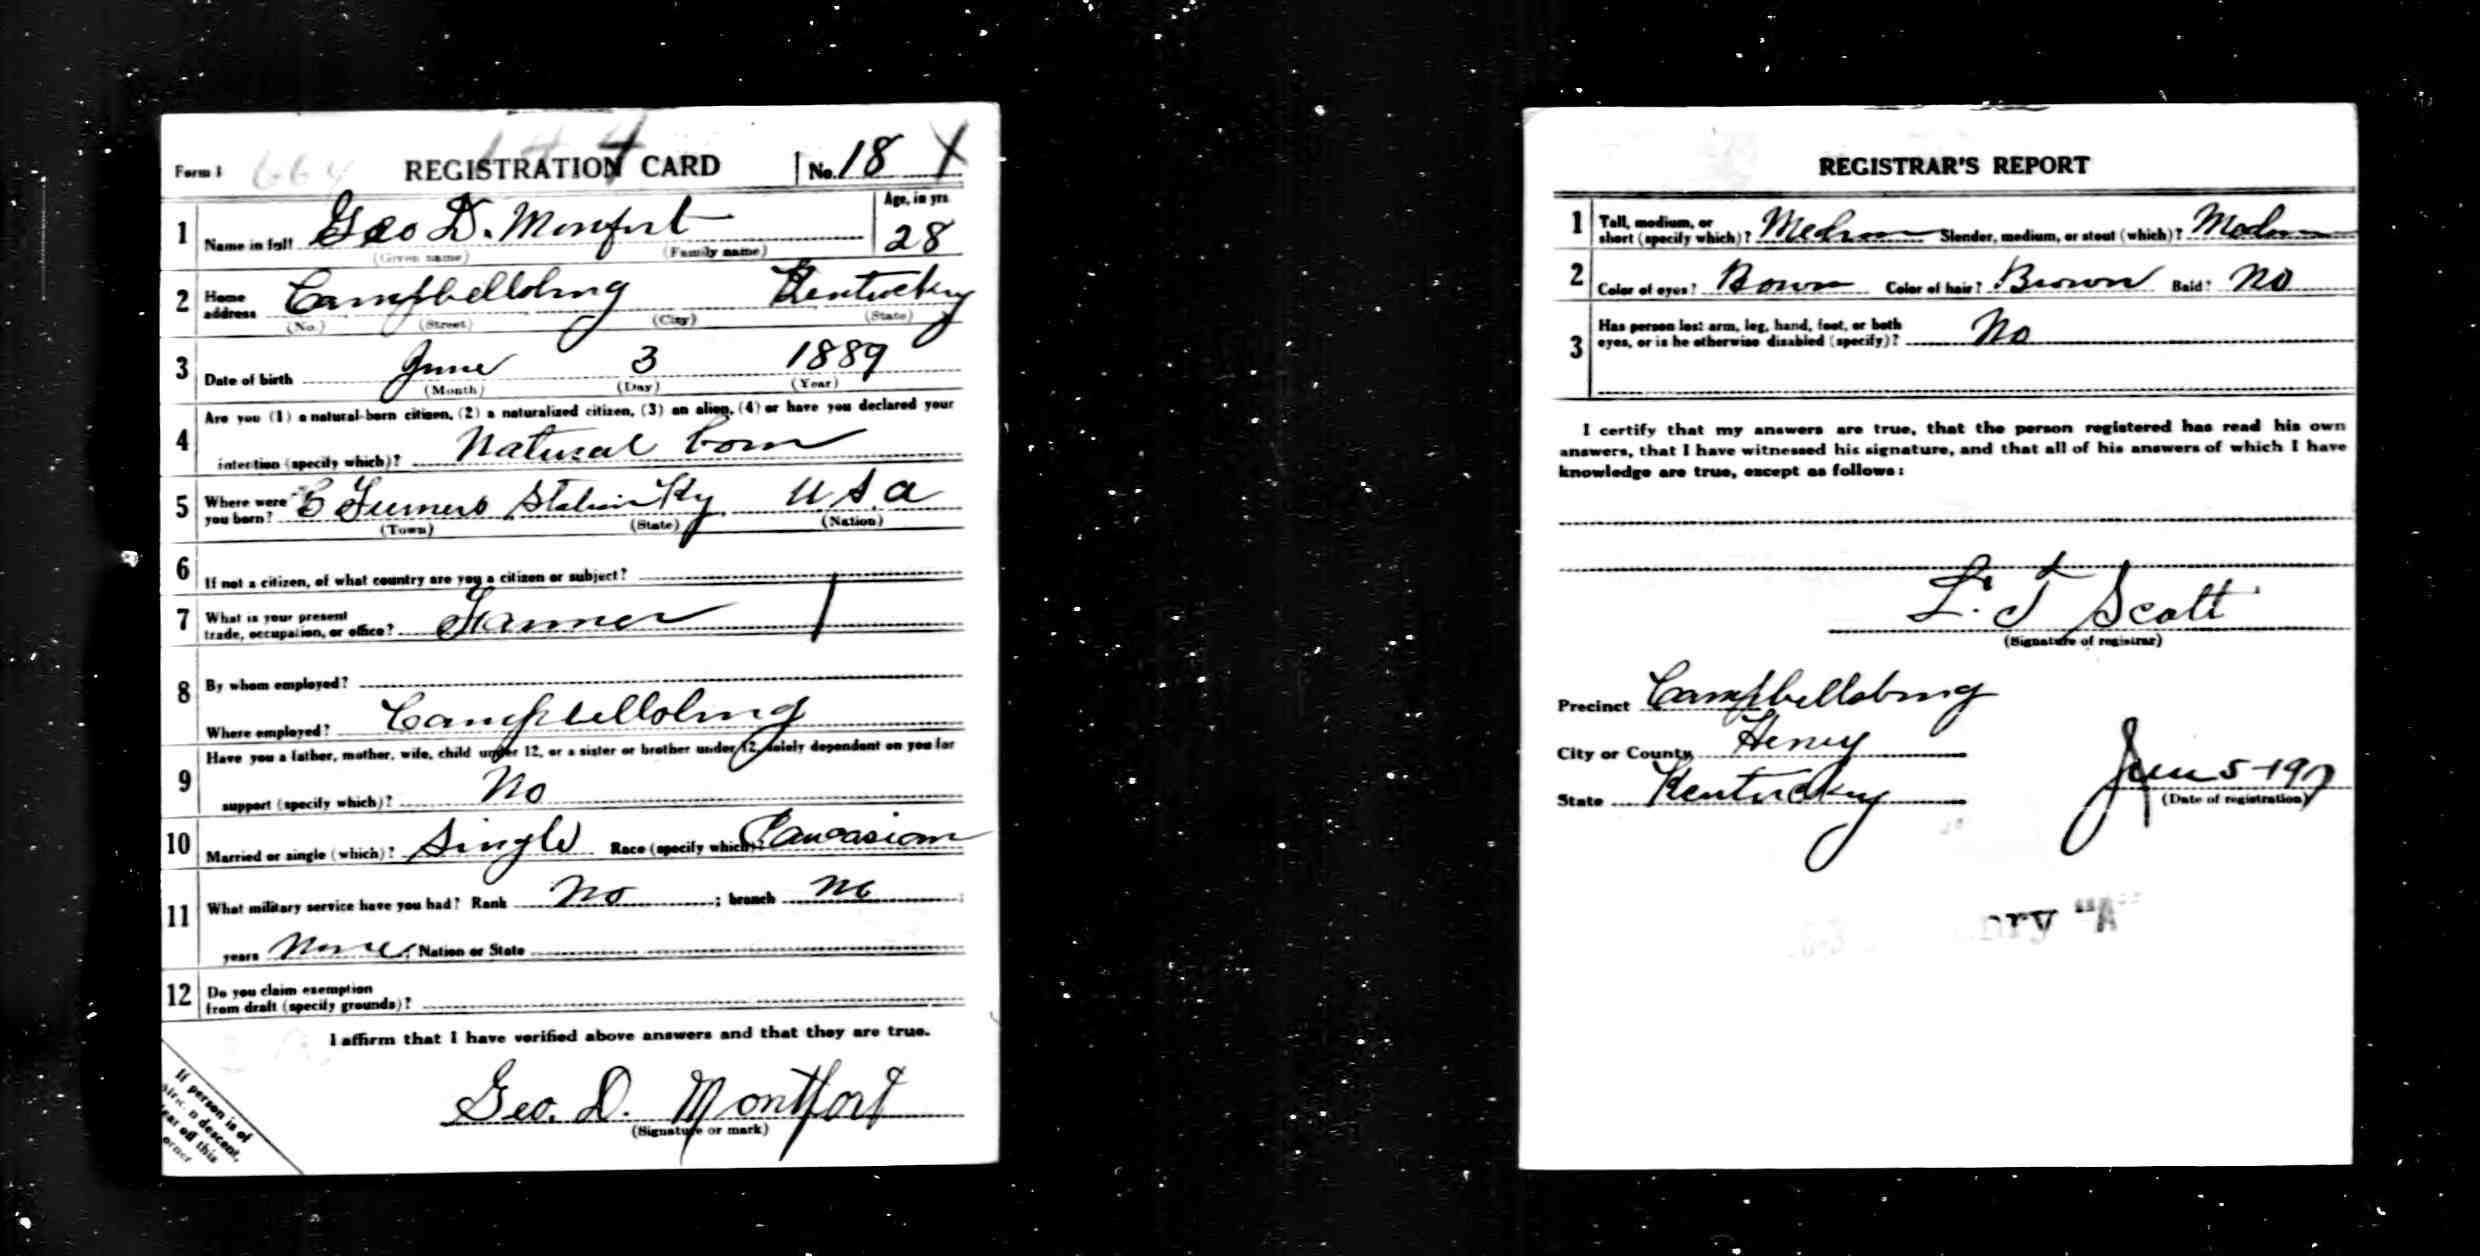 Form 1 664 REGISTRATION CARD No. 18
1 Name in full Geo D. Monfort Age, in yrs 28
(Given name) (Family name)
2 Home address Campbellsburg Kentucky
(No.) (Street) (City) (State)
3 Date of birth June 3 1889
(Month) (Day) (Year)
Are you (1) a natural-born citizen, (2) a naturalized citizen, (3) an alien, (4) or have you declared your
4 intention (specify which)? Natural born
5 Where were you born? Turners Station Ky U S A
(Town) (State) (Nation)
6 If not a citizen, of what country are you a citizen or subject?
7 What is your present trade, occupation, or office? Farmer
8 By whom employed?
Where employed? Campbellsburg
Have you a father, mother, wife, child under 12, or a sister or brother under 12, solely dependent on you for
9 support (specify which)? No
10 Married or single (which)? Single Race (specify which)? Caucasian
11 What military service have you had? Rank No ; branch no ;
years None; Nation or State
12 Do you claim exemption from draft (specify grounds)?
I affirm that I have verified above answers and that they are true.
Geo. D. Montfort
(Signature or mark)
If person is of
descent,
off this
REGISTRAR'S REPORT
1 Tall, medium, or short (specify which)? Medium Slender, medium, or stout (which)? Medium
2 Color of eyes? Brown Color of hair? Brown Bald? No
3 Has person lost arm, leg, hand, foot, or both eyes, or is he otherwise disabled (specify)? No
I certify that my answers are true, that the person registered has read his own
answers, that I have witnessed his signature, and that all of his answers of which I have
knowledge are true, except as follows:
L. T Scott
(Signature of registrar)
Precinct Campbellsburg
City or County Henry
State Kentucky
June 5-1917
(Date of registration)
"A"